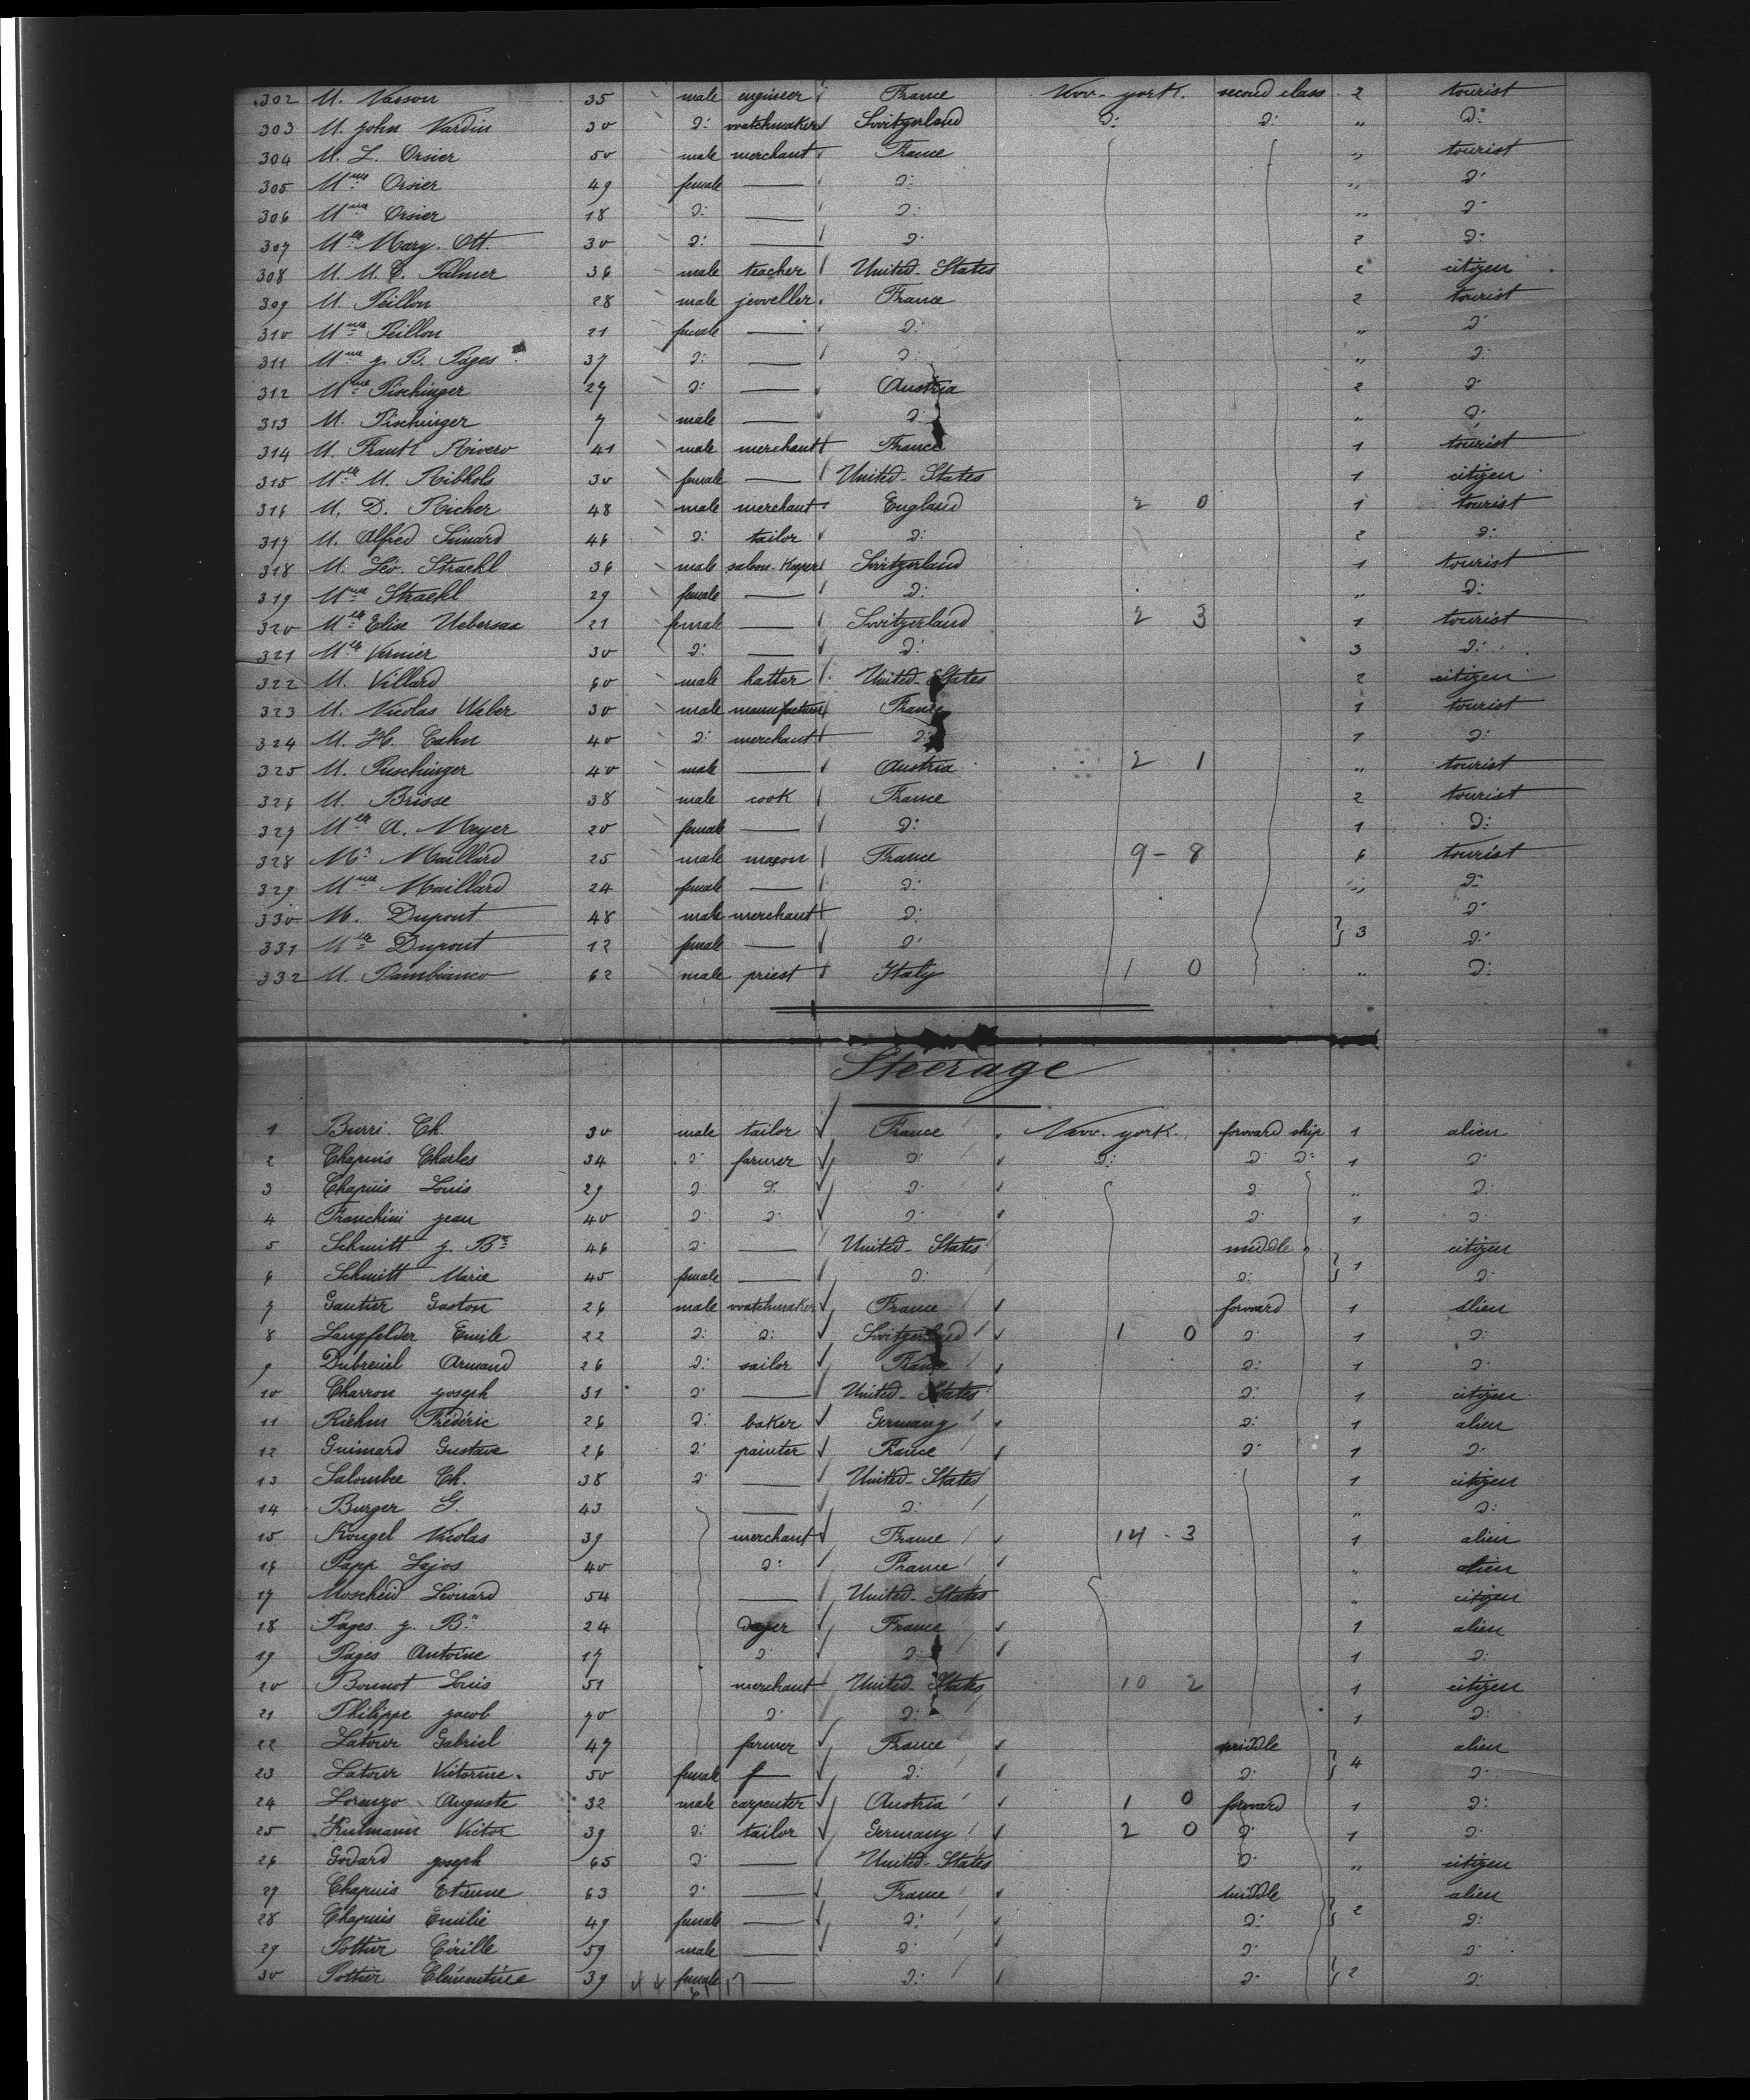 302 M. Nasson 35 male engineer France New-york. second class 2 tourist
303 M. John Nardin 30 d: watchmaker Switzerland d: d: " d:
304 M. L. Orsier 50 male merchant France " tourist
305 Mme Orsier 49 female — d: " d:
306 Mme Orsier 18 d: — d: " d:
307 Mlle Mary. Ott. 30 d: — d: 2 d:
308 M. M. C. Palmer 36 male teacher United-States 2 citizen
309 M. Peillon 28 male jeweller France 2 tourist
310 Mme Peillon 21 female — d: " d:
311 Mme J. B. Pages 37 d: — d: " d:
312 Mme Pischinger 27 d: — Austria 2 d:
313 M. Pischinger 7 male — d: " d:
314 M. Frank Rivero 41 male merchant France 1 tourist
315 Mlle M. Ribhols 30 female — United-States 1 citizen
316 M. D. Richer 48 male merchant England 2 0 1 tourist
317 M. Alfred Simard 46 d: tailor d: 2 d:
318 M. Léo. Straehl 36 male saloon-keeper Switzerland 1 tourist
319 Mme Straehl 29 female — d: " d:
320 Mlle Elise Uebersax 21 female — Switzerland 2 3 1 tourist
321 Mlle Vernier 30 d: — d: 3 d:
322 M. Villard 60 male hatter United-States 2 citizen
323 M. Nicolas Weber 30 male manufacturer France 1 tourist
324 M. H. Cahn 40 d: merchant d: 1 d:
325 M. Puschinger 40 male — Austria 2 1 " tourist
326 M. Brisse 38 male cook France 2 tourist
327 Mlle A. Meyer 20 female — d: 1 d:
328 Mr Maillard 25 male mason France 9-8 6 tourist
329 Mme Maillard 24 female — d: " d:
330 M. Dupont 48 male merchant d: d:
331 Mlle Dupont 12 female — d: } 3 d:
332 M. Pambianco 62 male priest Italy 1 0 " d:
Steerage
1 Burri. Ch. 30 male tailor France New-york. forward ship 1 alien
2 Chapuis Charles 34 d: farmer d: d: d: d: 1 d:
3 Chapuis Louis 29 d: d: d: d: " d:
4 Franchini jean 40 d: d: d: d: 1 d:
5 Schmitt J. Bte 46 d: — United-States middle citizen
6 Schmitt Marie 45 female — d: d: } 1 d:
7 Gautier Gaston 26 male watchmaker France forward 1 alien
8 Langfelder Emile 22 d: d: Switzerland 1 0 d: 1 d:
9 Dubreuil Armand 26 d: sailor France d: 1 d:
10 Charron joseph 31 d: — United-States d: 1 citizen
11 Riehm Frédéric 26 d: baker Germany d: 1 alien
12 Guimard Gustave 26 d: painter France d: 1 d:
13 Salombee Ch. 38 d: — United-States 1 citizen
14 Burger G. 43 — d: " d:
15 Kougel Nicolas 39 merchant France 14-3 1 alien
16 Papp Lajos 40 d: France " alien
17 Moscheid Léonard 54 — United-States " citizen
18 Pages. J. Bte 24 dyer France 1 alien
19 Pages Antoine 17 d: d: 1 d:
20 Bonnot Louis 51 merchant United-States 10 2 1 citizen
21 Philippe jacob 70 d: d: 1 d:
22 Latour Gabriel 47 farmer France middle alien
23 Latour Victorine. 50 female — d: d: } 4 d:
24 Lorenzo Auguste 32 male carpenter Austria 1 0 forward 1 d:
25 Kulmann Victor 39 d: tailor Germany 2 0 d: 1 d:
26 Godard joseph 65 d: — United-States d: " citizen
27 Chapuis Etienne 63 d: — France middle alien
28 Chapuis Emilie 49 female — d: d: } 2 d:
29 Pottier Cirille 59 male — d: d: d:
30 Pottier Clémentine 39 female — d: d: } 2 d: